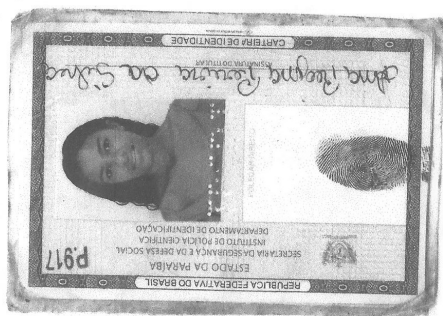 REPÚBLICA FEDERATIVA DO BRASIL
ESTADO DA PARAÍBA
P.917
SECRETARIA DA SEGURANÇA E DA DEFESA SOCIAL
INSTITUTO DE POLÍCIA CIENTÍFICA
DEPARTAMENTO DE IDENTIFICAÇÃO
POLEGAR DIREITO
da Silva
ASSINATURA DO TITULAR
CARTEIRA DE IDENTIDADE